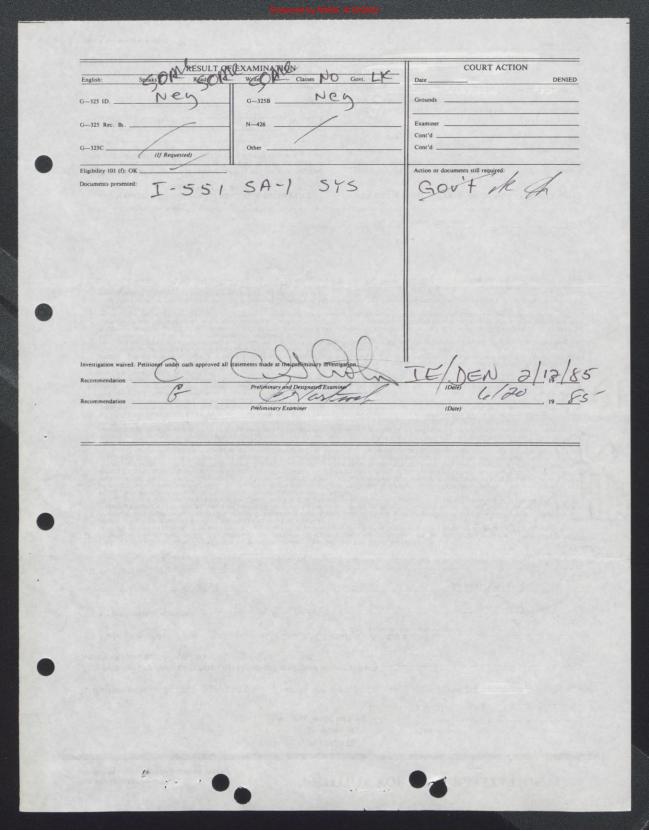 RESULT OF EXAMINATION
English: Speaks SOME Reads SOME Write SOME Classes NO Govt. LK
G—325 ID. Neg G—325B Neg
G—325 Rec. Br. N—426
G—325C Other
(If Requested)
Eligibility 101 (f): OK
Documents presented: I-551 SA-1 SYS
COURT ACTION
Date DENIED
Grounds
Examiner
Cont'd
Cont'd
Action or documents still required:
Gov't
Investigation waived. Petitioner under oath approved all statements made at the preliminary investigation.
Recommendation IE/DEN 2/12/85
Preliminary and Designated Examiner (Date)
Recommendation G 6/20 19 85
Preliminary Examiner (Date)